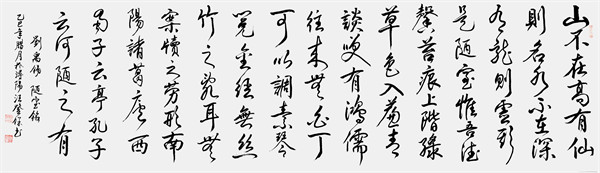 山不在高有仙
則名水不在深
有龍則靈斯
是陋室惟吾德
馨苔痕上階綠
草色入簾青
談笑有鴻儒
往來無白丁
可以調素琴
閱金經無絲
竹之亂耳無
案牘之勞形南
陽諸葛廬西
蜀子云亭孔子
云何陋之有
劉禹錫 陋室銘
乙巳年腊月於